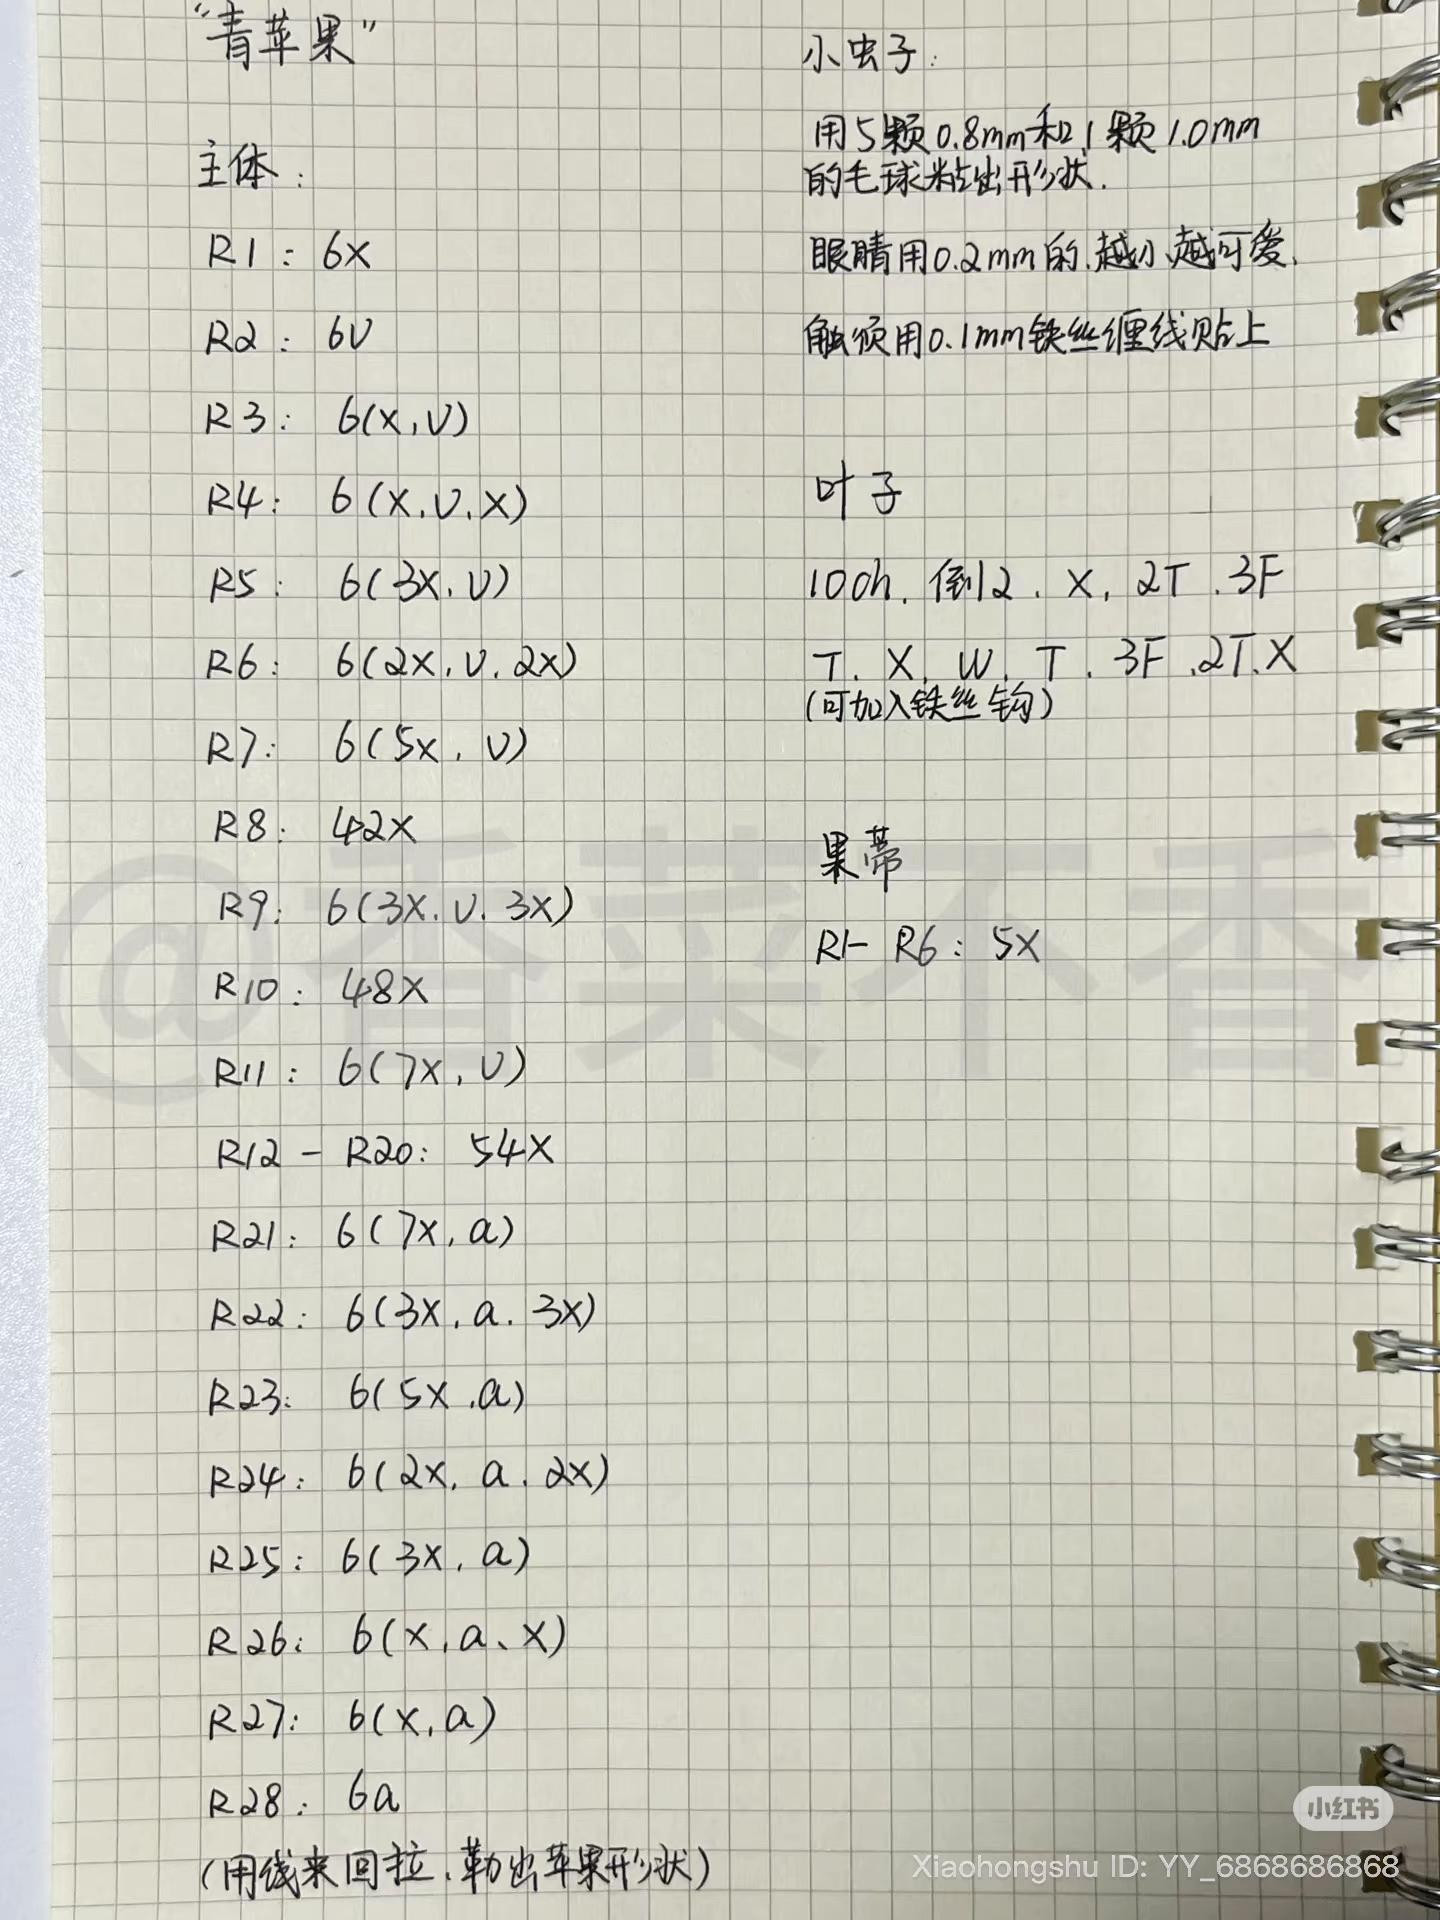 “青苹果”
主体：
R1：6X
R2：6V
R3：6(X,V)
R4：6(X.V.X)
R5：6(3X.V)
R6：6(2X.V.2X)
R7：6(5X,V)
R8：42X
R9：6(3X.V.3X)
R10：48X
R11：6(7X,V)
R12-R20：54X
R21：6(7X,a)
R22：6(3X.a.3X)
R23：6(5X.a)
R24：6(2X,a.2X)
R25：6(3X,a)
R26：6(X,a、X)
R27：6(X,a)
R28：6a
(用线来回拉.勒出苹果形状)
小虫子：
用5颗0.8mm和1颗1.0mm
的毛球粘出形状.
眼睛用0.2mm的.越小越可爱.
触须用0.1mm铁丝缠线贴上
叶子
10ch.倒2.X.2T.3F
T.X.W.T.3F.2T.X
(可加入铁丝钩)
果蒂
R1-R6：5X
@香菜不香
小红书
Xiaohongshu ID: YY_6868686868